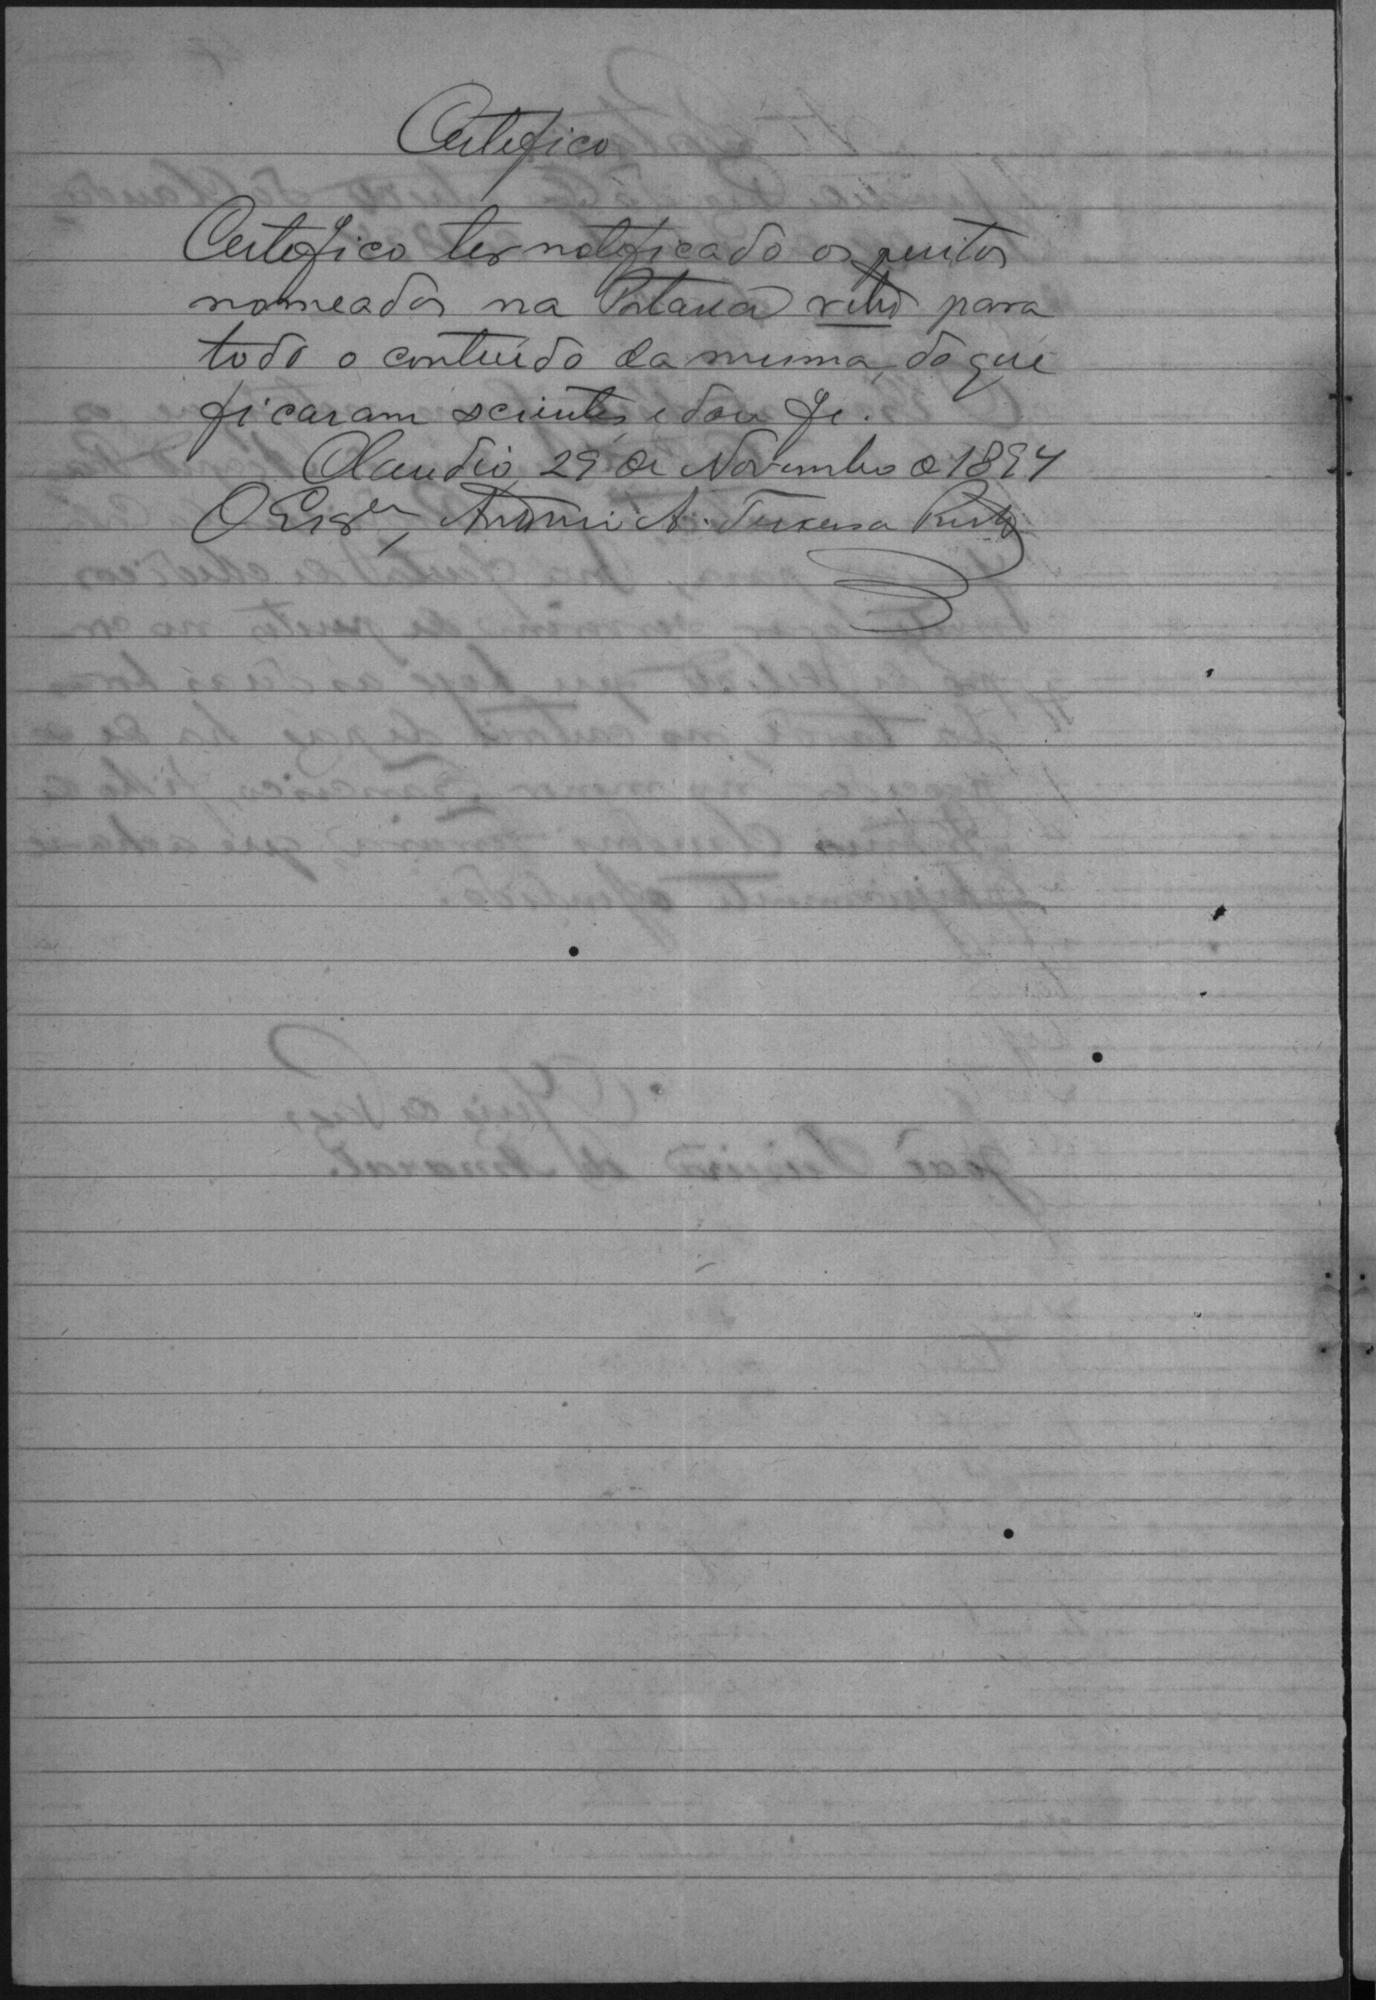 Certefico
Certefico ter notificado os peritos
nomeados na Portaria retro para
todo o contuido da mesma, do que
ficaram scientes, e dou fé.
Claudio, 29 de Novembro de 1894
O Escr.am, Antonio A. Teixeira